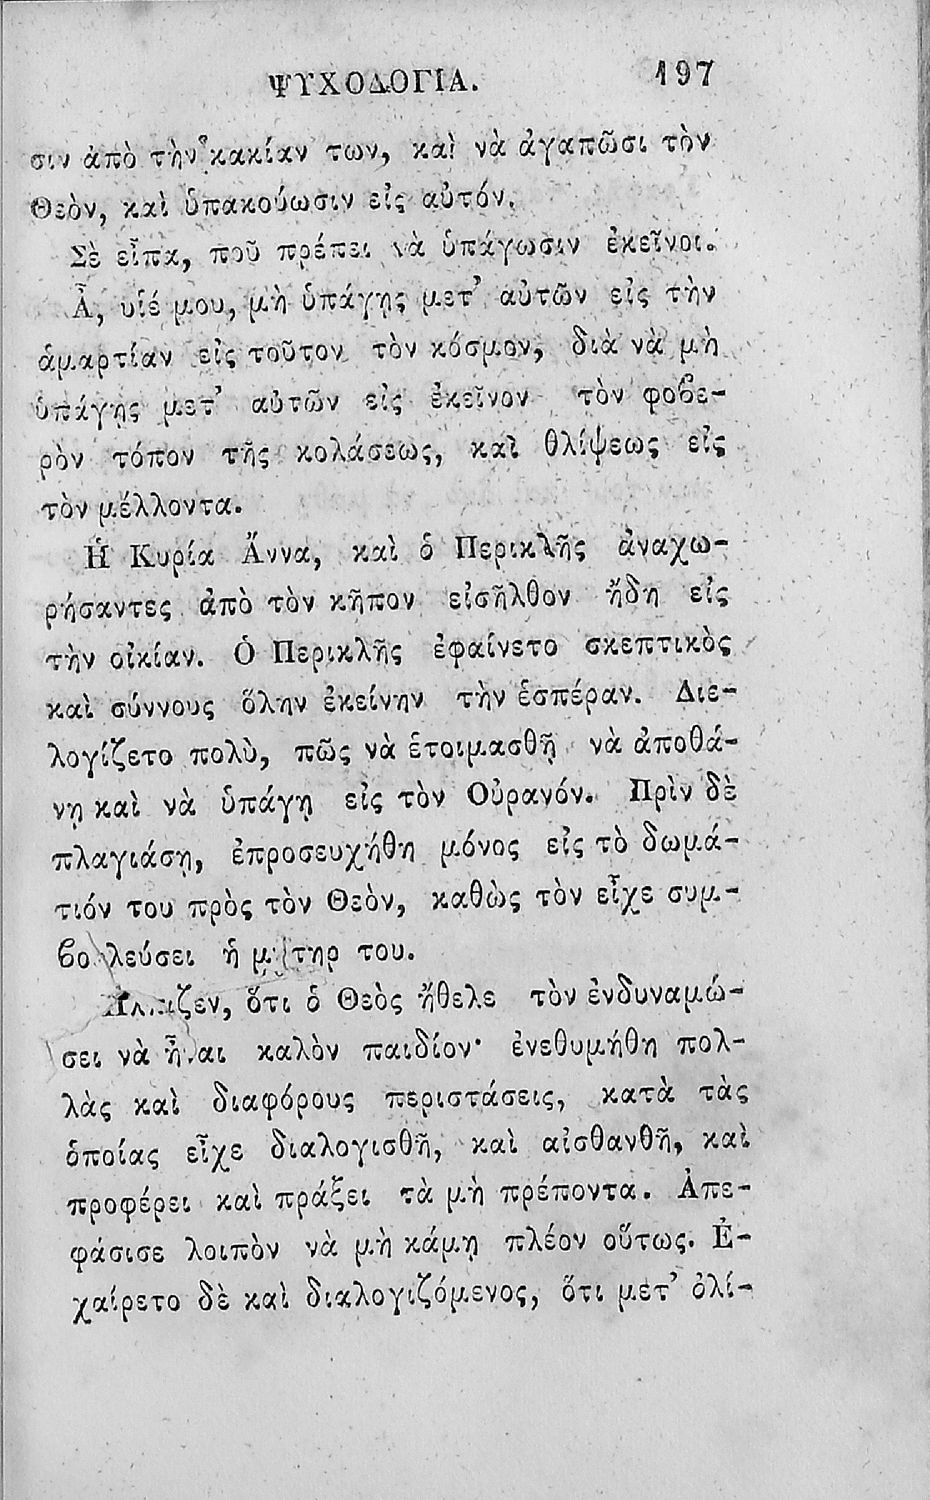 ΨΥΧΟΔΟΓΙΑ. 197
σιν ἀπὸ τὴν κακίαν των, καὶ νὰ ἀγαπῶσι τὸν
Θεὸν, καὶ ὑπακούωσιν εἰς αὐτόν.
Σὲ εἶπα, ποῦ πρέπει νὰ ὑπάγωσιν ἐκεῖνοι.
Ἆ, υἱέ μου, μὴ ὑπάγῃς μετ' αὐτῶν εἰς τὴν
ἁμαρτίαν εἰς τοῦτον τὸν κόσμον, διὰ νὰ μὴ
ὑπάγῃς μετ' αὐτῶν εἰς ἐκεῖνον τὸν φοβε-
ρὸν τόπον τῆς κολάσεως, καὶ θλίψεως εἰς
τὸν μέλλοντα.
Ἡ Κυρία Ἄννα, καὶ ὁ Περικλῆς ἀναχω-
ρήσαντες ἀπὸ τὸν κῆπον εἰσῆλθον ἤδη εἰς
τὴν οἰκίαν. Ὁ Περικλῆς ἐφαίνετο σκεπτικὸς
καὶ σύννους ὅλην ἐκείνην τὴν ἑσπέραν. Διε-
λογίζετο πολὺ, πῶς νὰ ἑτοιμασθῇ νὰ ἀποθά-
νῃ καὶ νὰ ὑπάγῃ εἰς τὸν Οὐρανόν. Πρὶν δὲ
πλαγιάσῃ, ἐπροσευχήθη μόνος εἰς τὸ δωμά-
τιόν του πρὸς τὸν Θεὸν, καθὼς τὸν εἶχε συμ-
βουλεύσει ἡ μήτηρ του.
ὅτι ὁ Θεὸς ἤθελε τὸν ἐνδυναμώ-
σει νὰ ἦναι καλὸν παιδίον· ἐνεθυμήθη πολ-
λὰς καὶ διαφόρους περιστάσεις, κατὰ τὰς
ὁποίας εἶχε διαλογισθῆ, καὶ αἰσθανθῆ, καὶ
προφέρει καὶ πράξει τὰ μὴ πρέποντα. Ἀπε-
φάσισε λοιπὸν νὰ μὴ κάμῃ πλέον οὕτως. Ἐ-
χαίρετο δὲ καὶ διαλογιζόμενος, ὅτι μετ' ὀλί-